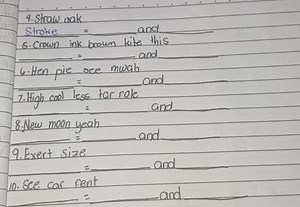 4. Straw oak
Stroke = and
5. Crown ink brown kite this
= and
6. Hen pie see mwah
= and
7. High cool less tar role
= and
8. New moon yeah
= and
9. Exert size
= and
10. See car rent
= and